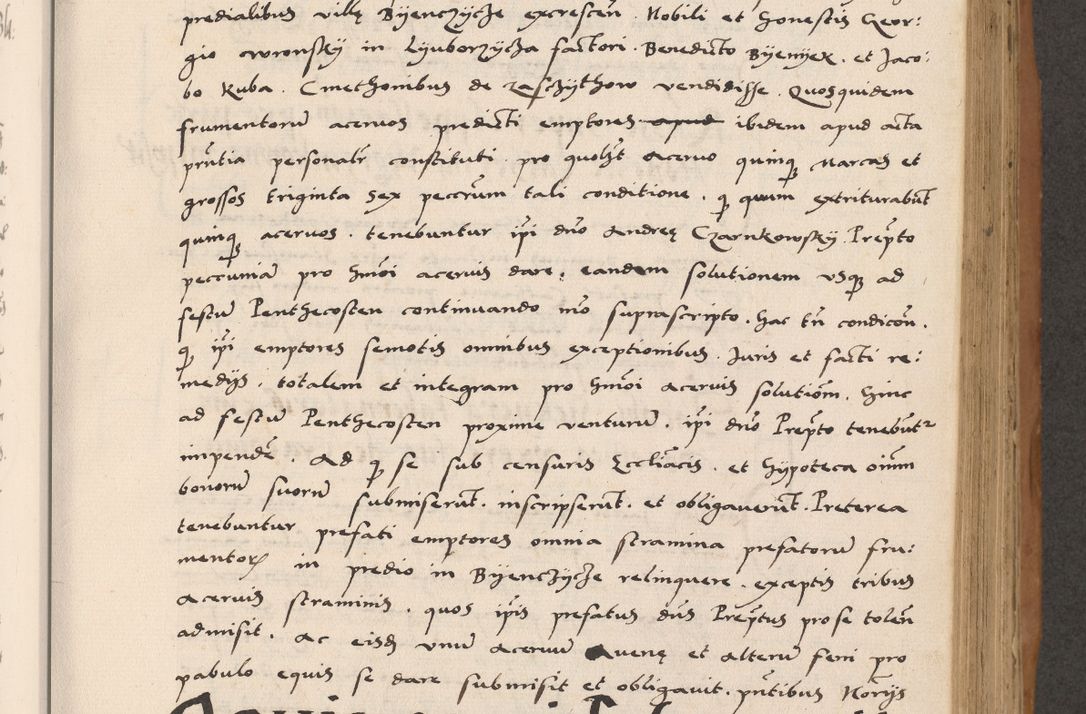 predialibus villę Byenczycze excrescen̄. Nobili et honestis Geor:
gio cwronsky in Lyuborzycza factori. Benedicto Byenyek. et Jaco:
bo Kuba. Cmethonibus de raschythow vendidisse. Quosquidem
frumentorū acervos predicti emptores apud ibidem apud acta
pn̄tia personalr̄ constituti. pro quolꝫt acervo quinqꝫ marcas et
grossos triginta sex peccrum̄ tali conditione. ꝙ quum extriturabūt
quinqꝫ acervos. tenebuntur ip̄i dn̄o Andreę Czarnkowsky. Prep̄to
peccuniā pro hmōi acervis dare, eandem solutionem usqꝫ ad
festū Penthecosten continuando mō suprascripto. hac tn̄ condicōn.
ꝙ ip̄i emptores semotis omnibus exceptionibus. Juris et facti re:
medijs. totalem et integram pro hmōi acervis solutiōm. hinc
ad festū Penthecosten proxime venturū. ip̄i dn̄o Prep̄to tenebūtr
impendē. Ad ꝙ se sub censuris Eccliācis. et hypoteca oīum
bonorū suorū submiserūt. inscripserūt. et obligaverūt. Preterea
tenebuntur prefati emptores omnia stramina prefatorū fru:
mentorꝝ in predio in Byenczycze relinquere. exceptis tribus
acervis straminis. quos ip̄is prefatus dn̄s Prep̄tus pro se tolen̄
admisit. ac eisdꝫ unū acervū Avenę et alterū feni pro
pabulo equis se dare submisit et obligavit. pn̄tibus Norijs